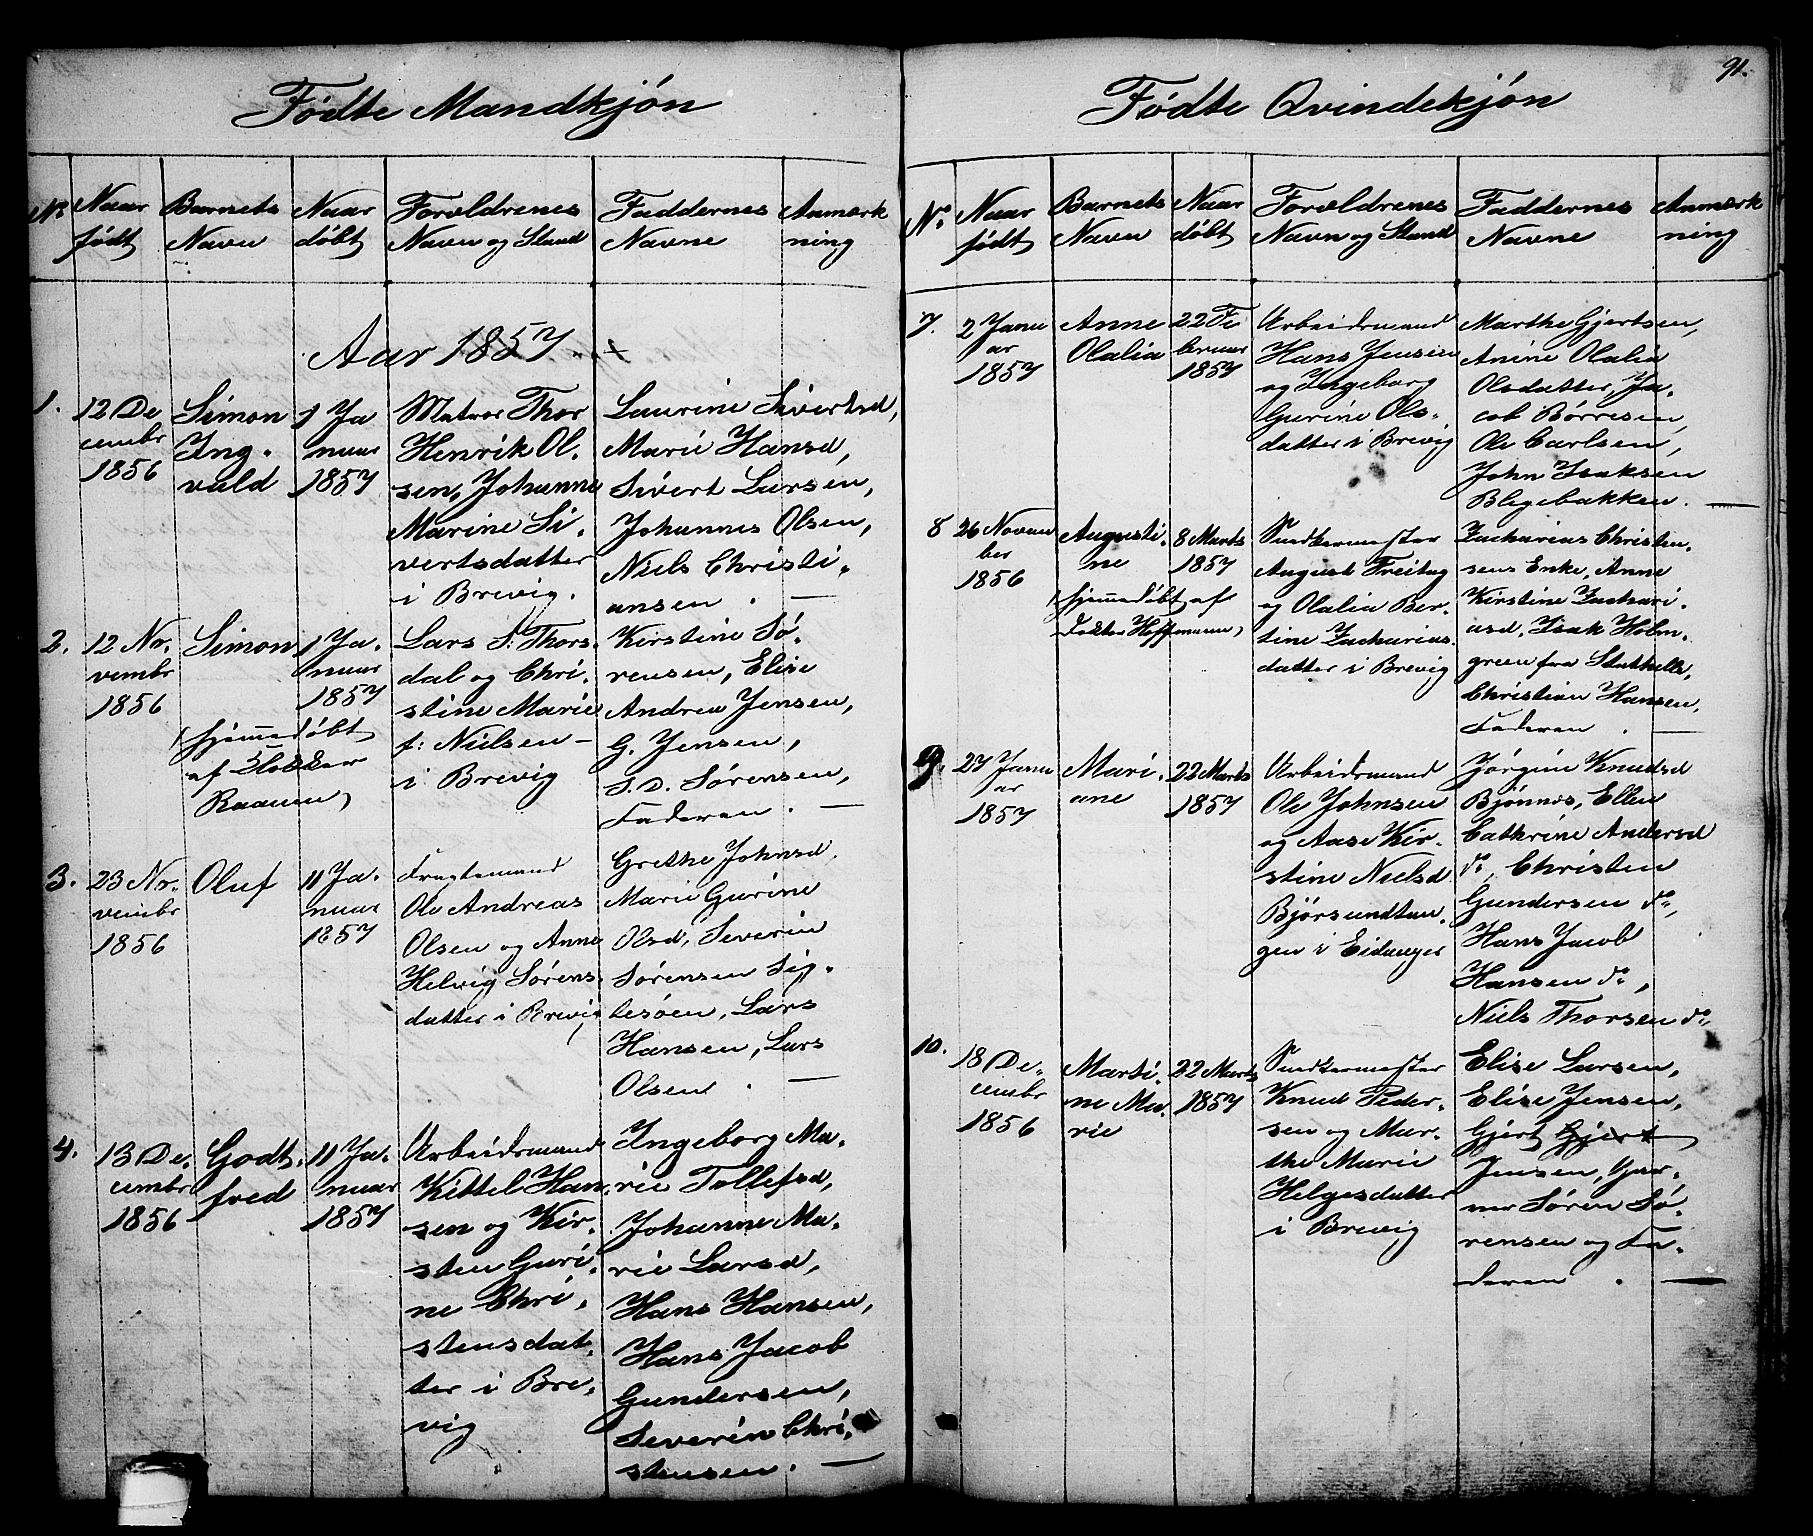 Fødte Mandkjøn
No
Naar
født
Barnets
Navn
Naar
døbt
Forældrenes
Navn og Stand
Faddernes
Navne
Anmærk
ning
Aar 1857.
1.
12 De
cembr
1856
Simon
Ing-
vald
1 Ja
nuar
1857
Matros Thor
Henrik Ol-
sen, Johanne
Marine Si-
vertsdatter
i Brevig.
Laurine Sivertsd,
Marie Hansd,
Sivert Larsen,
Johannes Olsen,
Niels Christi-
ansen. —
2.
12 No-
vembr
1856
Simon
(hjemmedøbt
af Klokker
Raaum)
1 Ja-
nuar
1857
Lars S. Thors-
dal og Chri-
stine Marie
f: Nielsen —
i Brevig
Kirstine Sø-
rensen, Elise
Andrea Jensen,
G. Jensen,
S. D. Sørensen,
Faderen. —
3.
23 No-
vembr
1856
Oluf
11 Ja-
nuar
1857
Fragtemand
Ole Andreas
Olsen og Anne
Helvig Sørens
datter i Brevig
Grethe Johnsd,
Marie Gurine
Olsd, Severin
Sørensen Sig-
besøen, Lars
Hansen, Lars
Olsen. —
4.
13 De-
cembr
1856
Godt-
fred
11 Ja-
nuar
1857
Arbeidsmand
Kittel Han-
sen og Kir-
sten Guri-
ne Chri-
stensdat-
ter i Bre-
vig
Ingeborg Ma-
rie Tollefsd,
Johanne Ma-
rie Larsd,
Hans Hansen,
Hans Jacob
Gundersen,
Severin Chri-
stensen. —
91.
Fødte Qvindekjøn
No.
Naar
født
Barnets
Navn
Naar
døbt
Forældrenes
Navn og Stand
Faddernes
Navne
Anmærk
ning
7.
2 Janu
ar
1857
Anne
Olalia
22 Fe
bruar
1857
Arbeidsmand
Hans Jensen
og Ingeborg
Gurine Ols-
datter i Brevig
Marthe Gjertsen,
Anine Olalia
Olsdatter, Ja-
cob Børresen,
Ole Carlsen,
John Isaksen
Blegebakken. —
8
26 Novem
ber
1856
Augusti-
ne
(hjemmedøbt af
Doktor Hoffmann)
8 Marts
1857
Snedkermester
August Freitag
og Olalia Ber-
tine Zacharias
datter i Brevig
Zacharias Christen-
sens Enke, Anne
Kirstine Zachari-
asd, Isak Holm-
green fra Stathelle,
Christian Hansen,
Faderen. —
9.
27 Janu
ar
1857
Mari-
ane
22 Marts
1857
Arbeidsmand
Ole Johnsen
og Aase Kir-
stine Nielsd
Bjørsundtan-
gen i Eidanger
Jørgine Knudsd
Bjønnes, Ellen
Cathrine Andersd
do, Christen
Gundersen do,
Hans Jacob
Hansen do,
Niels Thorsen do
10.
18 De-
cembr
1856
Marti-
ne Ma-
rie
22 Marts
1857
Snedkermester
Knud Peder-
sen og Mar-
the Marie
Helgesdatter
i Brevig
Elise Larsen,
Elise Jensen,
Gjert Gjert
Jensen, Gar-
ver Søren Sø-
rensen og Fa-
deren. —